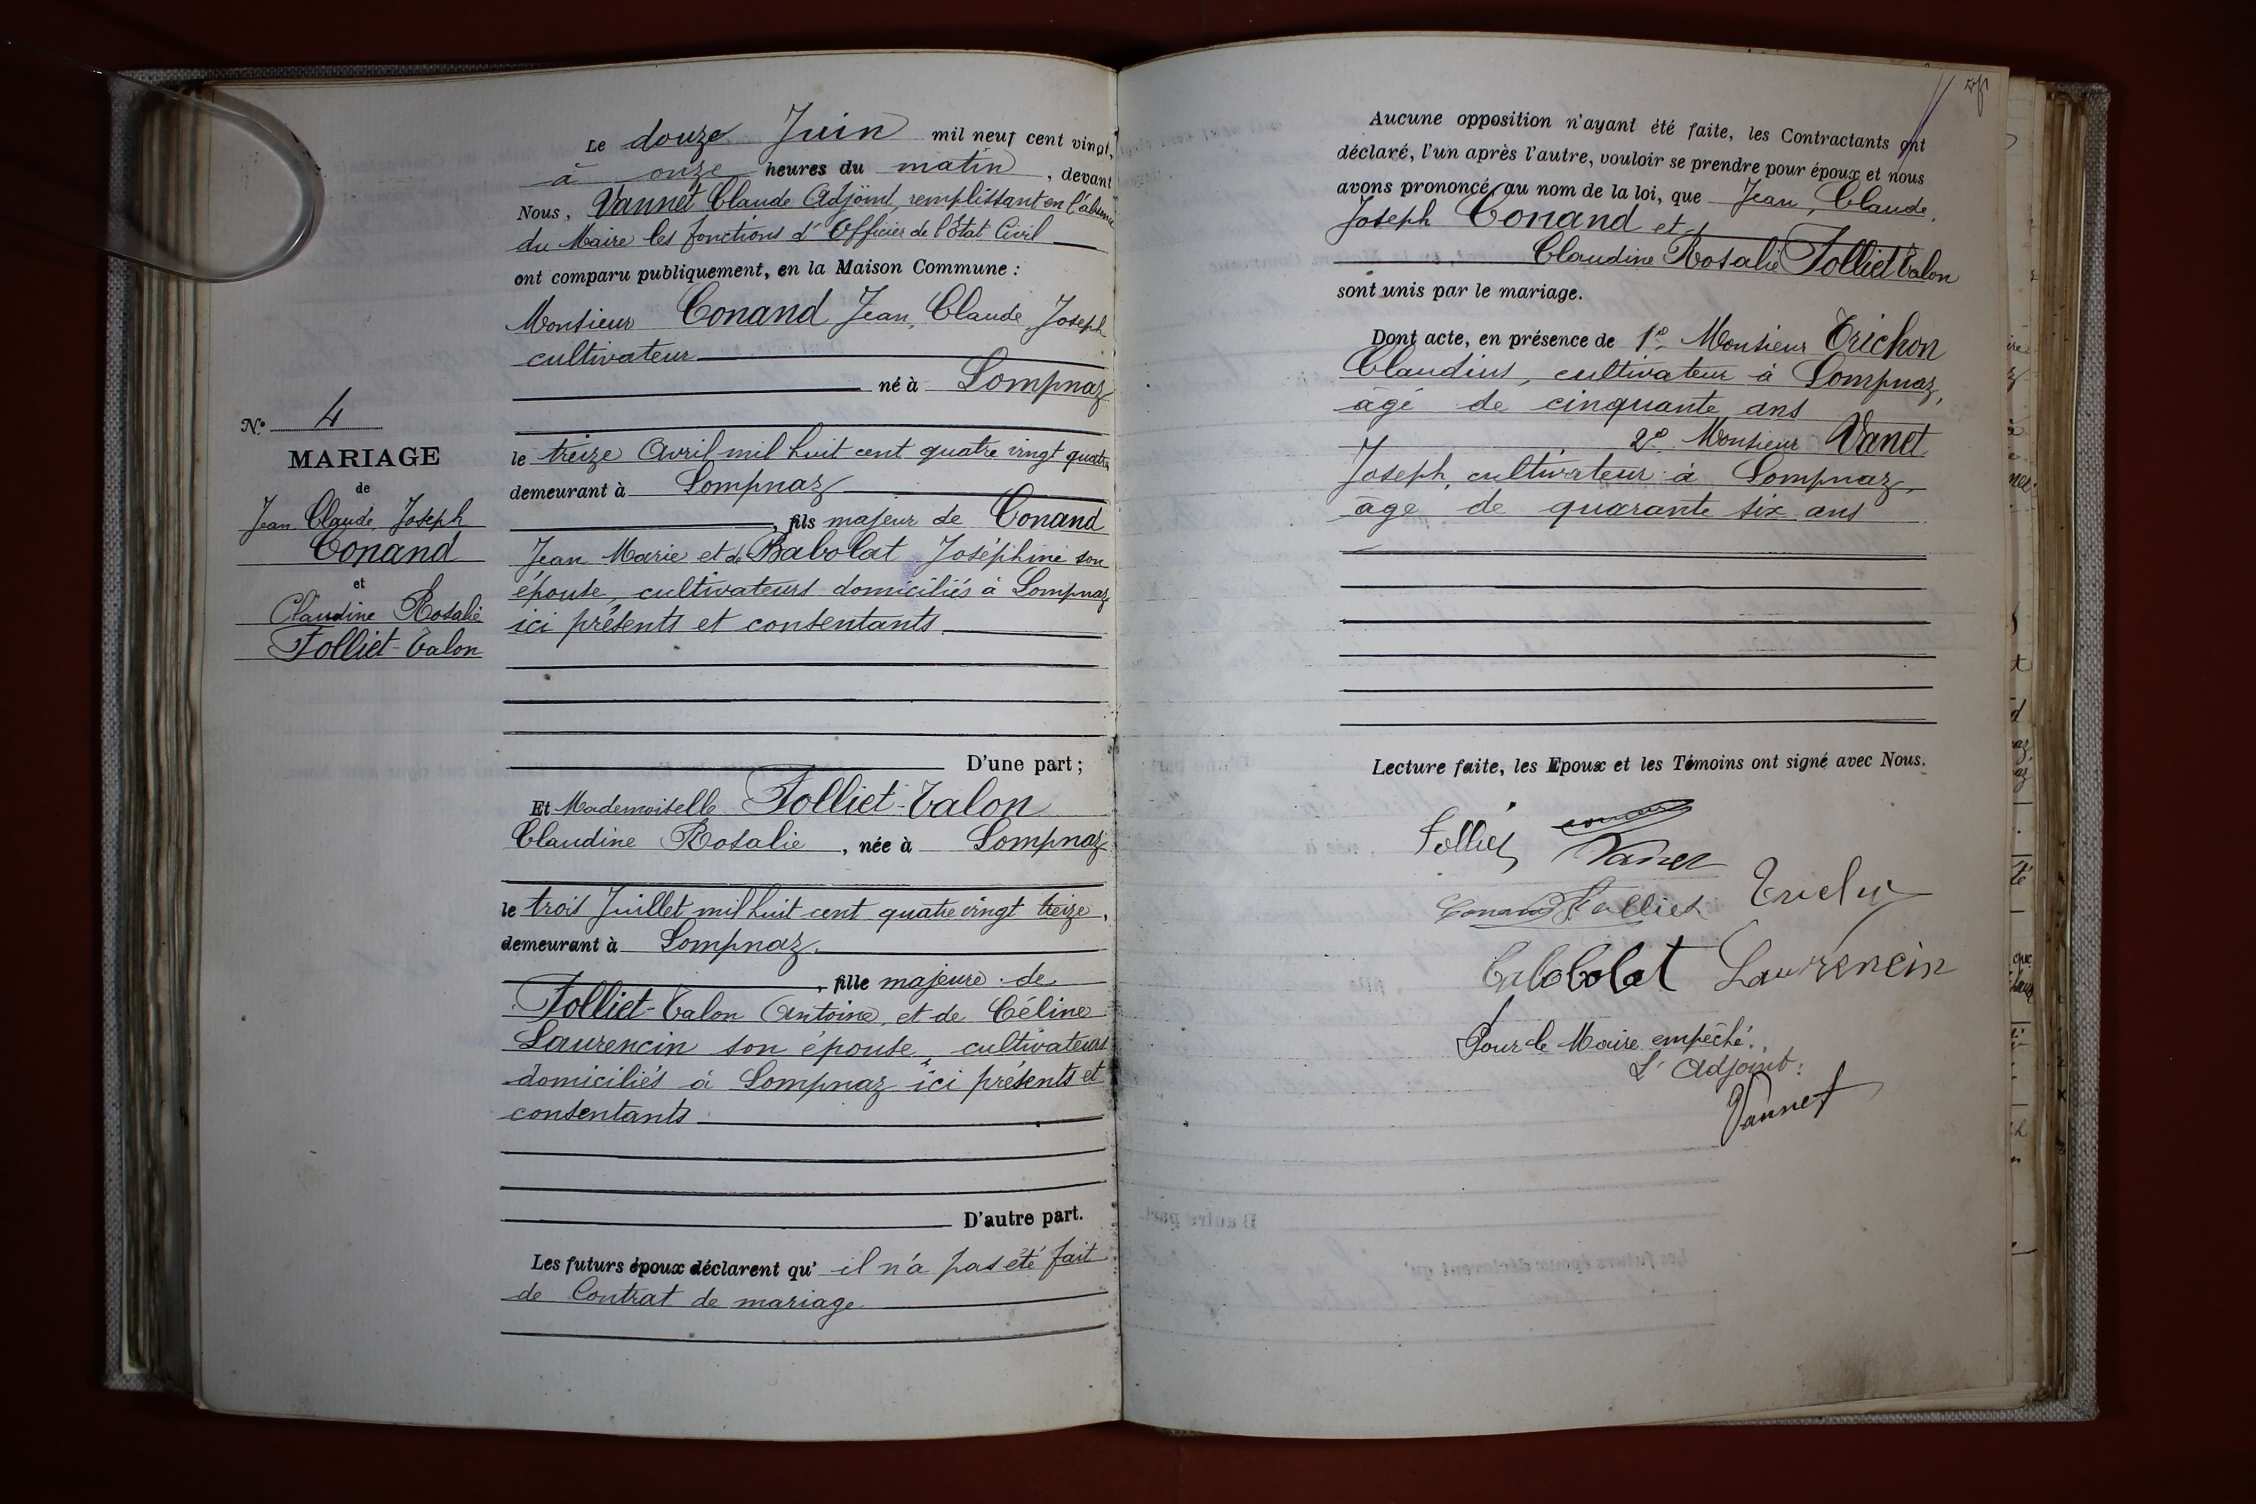 Le douze Juin mil neuf cent vingt,
à onze heures du matin, devant
Nous, Vannet Claude Adjoint remplissant en l'absence
du Maire les fonctions d'Officier de l'Etat Civil
ont comparu publiquement, en la Maison Commune :
Monsieur Conand Jean, Claude, Joseph
cultivateur
né à Lompnaz
le treize Avril mil huit cent quatre vingt quatre
demeurant à Lompnaz
, fils majeur de Conand
Jean Marie et de Babolat Joséphine son
épouse, cultivateurs domiciliés à Lompnaz
ici présents et consentants.
D'une part ;
Et Mademoiselle Folliet-Talon
Claudine Rosalie, née à Lompnaz
le trois Juillet mil huit cent quatre vingt treize,
demeurant à Lompnaz.
, fille majeure de
Folliet-Talon Antoine, et de Céline
Laurencin son épouse, cultivateurs
domiciliés à Lompnaz ici présents et
consentants
D'autre part.
Les futurs époux déclarent qu' il n'a pas été fait
de Contrat de mariage
N° 4
MARIAGE
de
Jean Claude Joseph
Conand
et
Claudine Rosalie
Folliet-Talon
Aucune opposition n'ayant été faite, les Contractants ont
déclaré, l'un après l'autre, vouloir se prendre pour époux et nous
avons prononcé, au nom de la loi, que Jean, Claude,
Joseph Conand et
Claudine Rosalie Folliet Talon
sont unis par le mariage.
Dont acte, en présence de 1° Monsieur Trichon
Claudius, cultivateur à Lompnaz,
âgé de cinquante ans
2° Monsieur Vanet
Joseph, cultivateur à Lompnaz,
âgé de quarante six ans
Lecture faite, les Epoux et les Témoins ont signé avec Nous.
Folliet Conand
Vanet
Conand Folliet
Babolat Laurencin
Pour le Maire empêché.
L'Adjoint :
Vannet